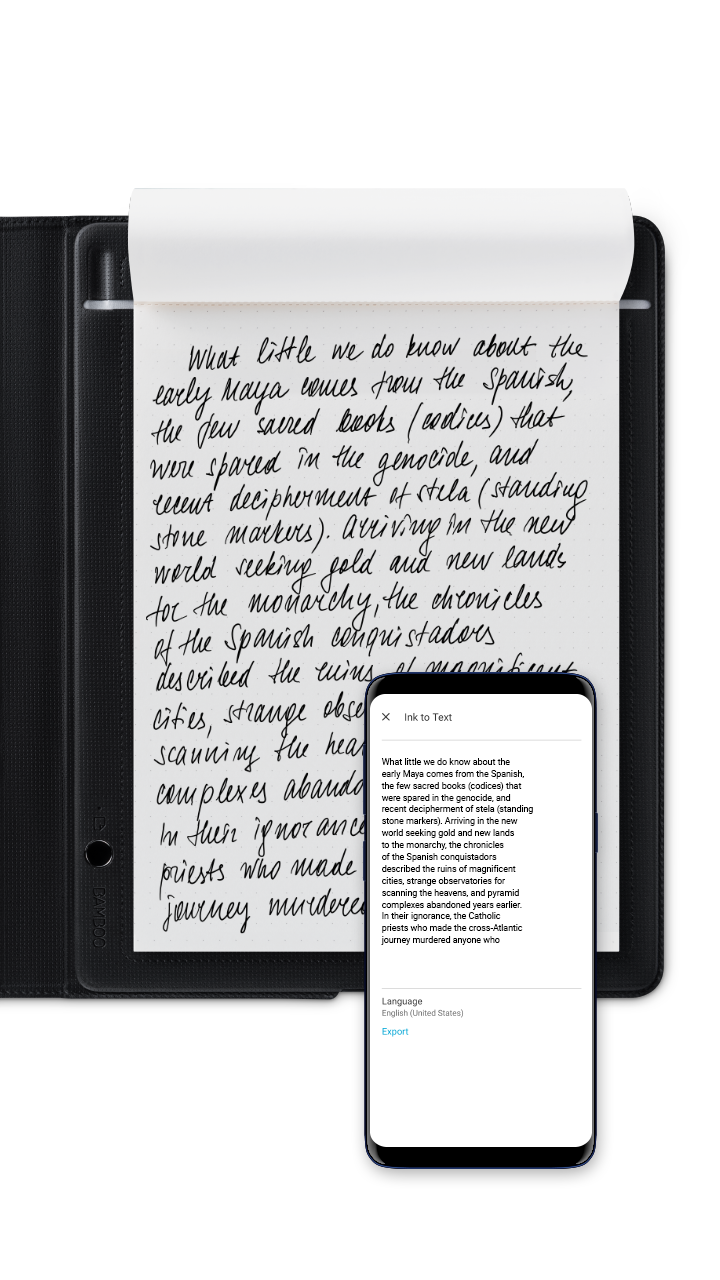 What little we do know about the
early Maya comes from the Spanish,
the few sacred books (codices) that
were spared in the genocide, and
recent decipherment of stela (standing
stone markers). Arriving in the new
world seeking gold and new lands
for the monarchy, the chronicles
of the Spanish conquistadors
described the ruins of magnificent
cities, strange obse
scanning the hea
complexes abando
In their ignorance
priests who made
journey murdered
BAMBOO
Ink to Text
What little we do know about the
early Maya comes from the Spanish,
the few sacred books (codices) that
were spared in the genocide, and
recent decipherment of stela (standing
stone markers). Arriving in the new
world seeking gold and new lands
to the monarchy, the chronicles
of the Spanish conquistadors
described the ruins of magnificent
cities, strange observatories for
scanning the heavens, and pyramid
complexes abandoned years earlier.
In their ignorance, the Catholic
priests who made the cross-Atlantic
journey murdered anyone who
Language
English (United States)
Export